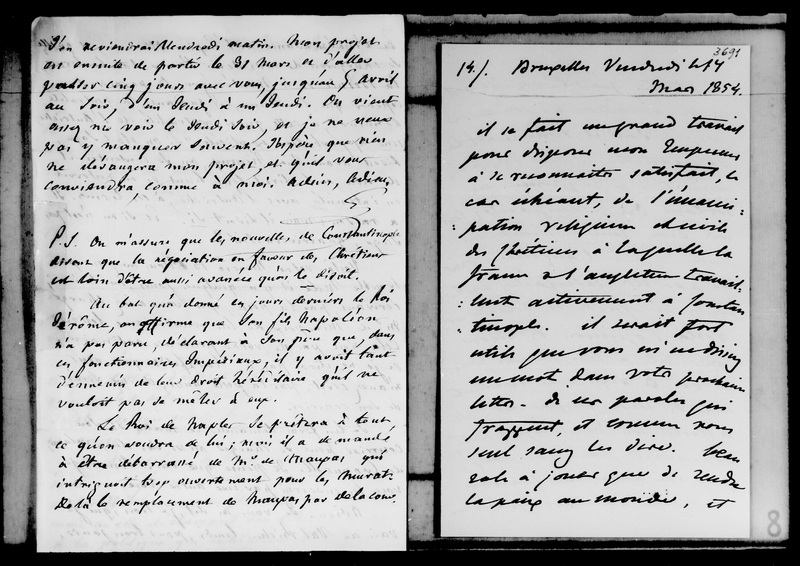 J'en reviendrai Vendredi matin. Mon projet
est ensuite de partir le 31 mars et d'aller
passer cinq jours avec vous, jusqu'au 5 avril
au soir, d'un Jeudi à un Jeudi. On vient
assez me voir le Jeudi soir, et je ne veux
pas y manquer souvent. J'espère que rien
ne dérangera mon projet, et qu'il vous
conviendra, comme à moi. Adieu, Adieu.
G
P.S. On m'assure que les nouvelles de Constantinople
disent que la négociation en faveur des Chrétiens
est loin d'être aussi avancée qu'on le disait.
Au bal qu'a donné ces jours derniers le Roi
Jérôme, on affirme que son fils Napoléon
n'a pas paru, déclarant à son père que, dans
ces fonctionnaires Impériaux, il y avoit tant
d'ennemis de leur droit héréditaire qu'il ne
vouloit pas se mêler à eux.
Le Roi de Naples se prêtera à tout
ce qu'on voudra de lui; mais il a demandé
à être débarrassé de Mr. de Maupas qui
intriguoit trop ouvertement pour les Murat.
De là le remplacement de Maupas par de la Cour.
3691
14/. Bruxelles Vendredi le 17
Mars 1854.
il se fait un grand travail
pour disposer mon Empereur
à se reconnaitre satisfait, le
cas échéant, de l'émanci-
pation religieuse et civile
des Chrétiens à laquelle la
france & l'angleterre travail-
lent activement à Constan-
tinople. il serait fort
utile que vous m'en disiez
un mot dans votre prochaine
lettre. de ces paroles qui
frappent, et comme vous
seul savez les dire. beau
role à jouer que de rendre
la paix au monde, et
8